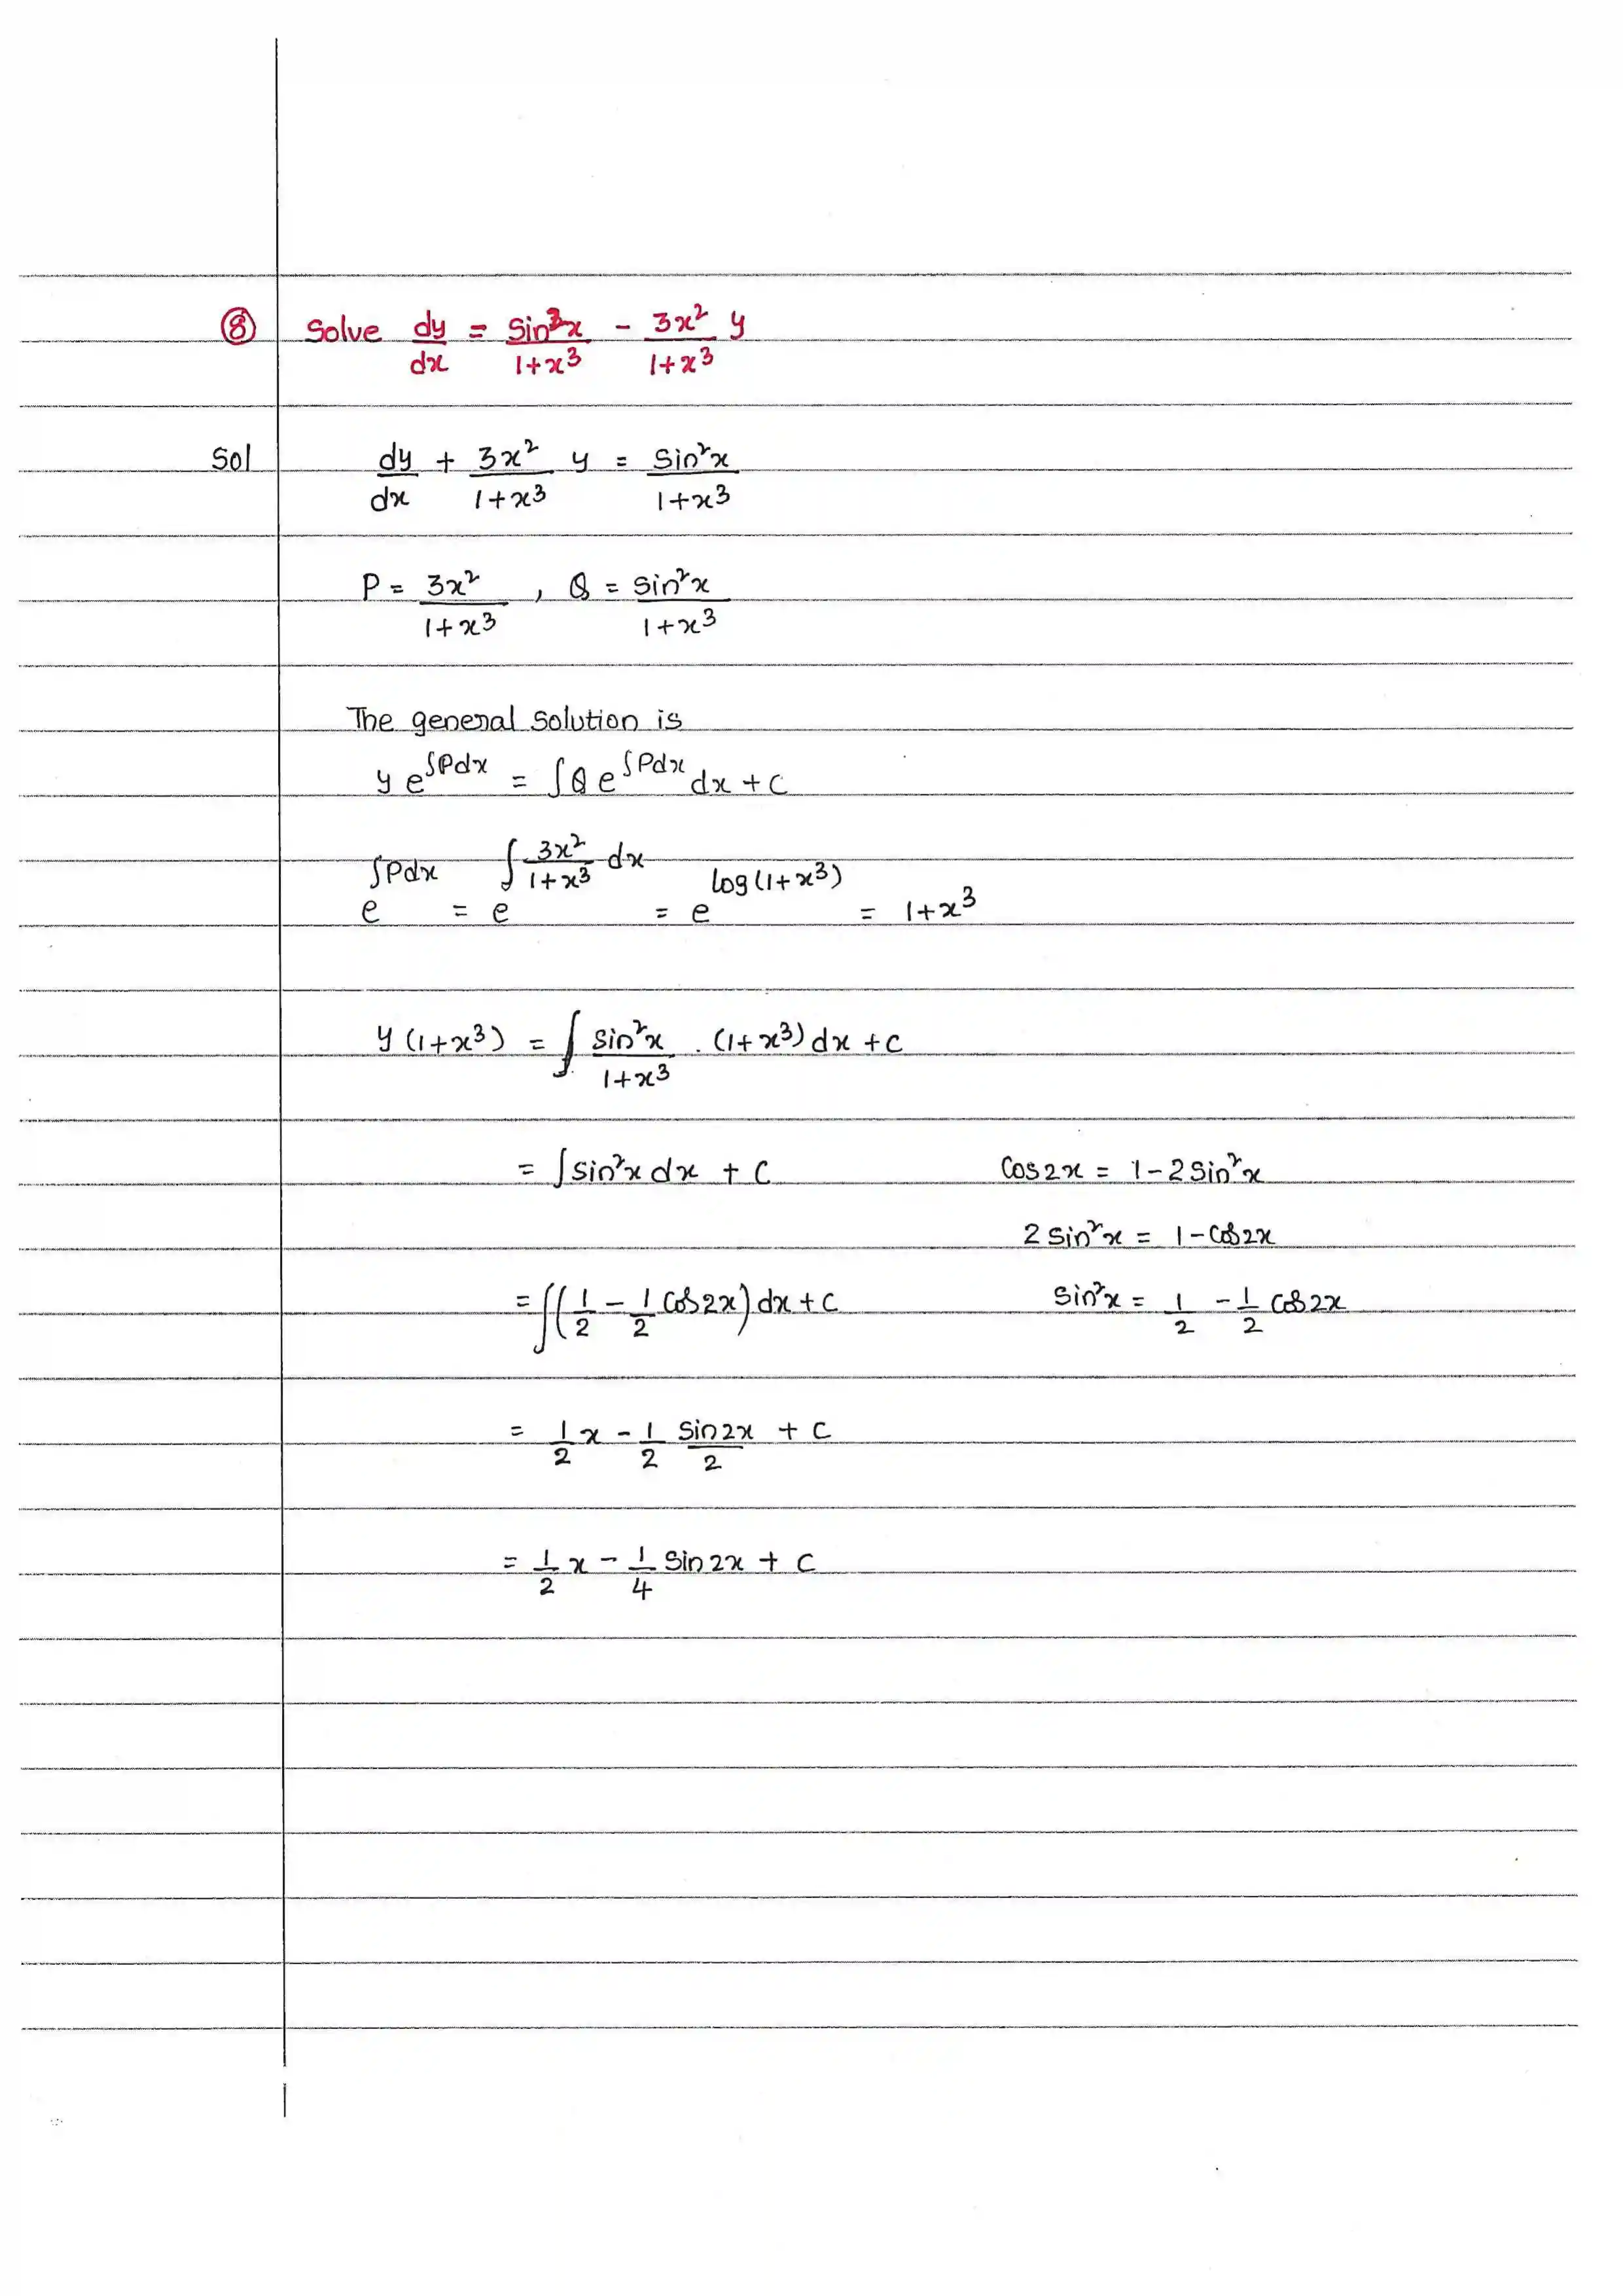 ⑧ Solve dy/dx = Sin²x/1+x³ - 3x²/1+x³ y
Sol dy/dx + 3x²/1+x³ y = Sin²x/1+x³
P = 3x²/1+x³ , Q = Sin²x/1+x³
The general Solution is
y e^∫Pdx = ∫Q e^∫Pdx dx + C
e^∫Pdx = e^∫3x²/1+x³ dx = e^log(1+x³) = 1+x³
y (1+x³) = ∫ Sin²x/1+x³ . (1+x³) dx + C
= ∫Sin²x dx + C Cos2x = 1-2Sin²x
2 Sin²x = 1-Cos2x
= ∫(1/2 - 1/2 Cos2x) dx + C Sin²x = 1/2 - 1/2 Cos2x
= 1/2 x - 1/2 Sin2x/2 + C
= 1/2 x - 1/4 Sin2x + C